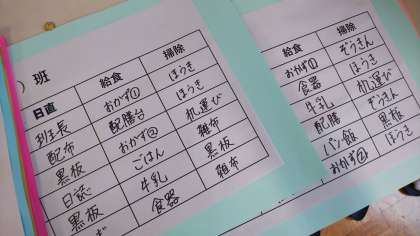 ）班
日直 給食 掃除
班長 おかず① ほうき
配布 配膳台 ほうき
黒板 おかず② 机運び
日誌 ごはん 雑布
黒板 牛乳 黒板
食器 雑布
給食 掃除
おかず① ぞうきん
食器 ほうき
牛乳 机運び
配膳 ぞうきん
パン飯 黒板
おかず② ほうき